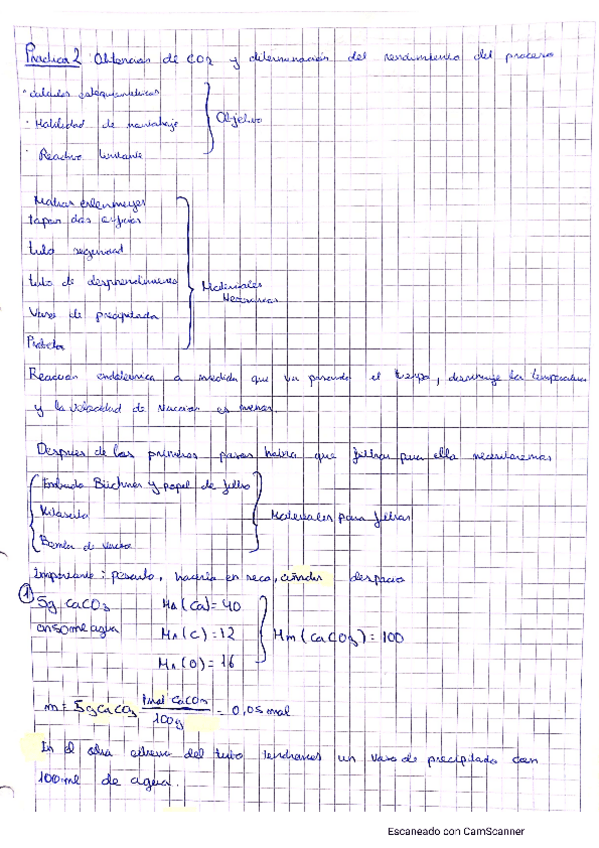 Practica 2 Obtencion de CO2 y determinación del rendimiento del proceso
· Calculos estequiometricos
· Habilidad de montaje
Objetivo
· Reactivo limitante
Matraz erlenmeyer
tapon dos orificios
tubo seguridad
tubo de desprendimiento
Materiales
Necesarios
Vaso de precipitado
Probeta
Reaccion endotermica a medida que va pasando el tiempo, disminuye la temperatura
y la velocidad de reaccion es menor.
Despues de los primeros pasos habra que filtrar para ello necesitaremos
Embudo Büchner y papel de filtro
Kitasato
Materiales para filtrar
Bomba de vacio
Importante: pesarlo, hacerlo en seco, añadir despacio
① 5g CaCO3 MA (Ca) = 40
en 50ml agua MA (C) = 12 Mm (CaCO3) = 100
MA (O) = 16
m = 5g CaCO3 1mol CaCO3 / 100g = 0,05 mol
En el otro extremo del tubo tendremos un vaso de precipitado con
100ml de agua.
Escaneado con CamScanner